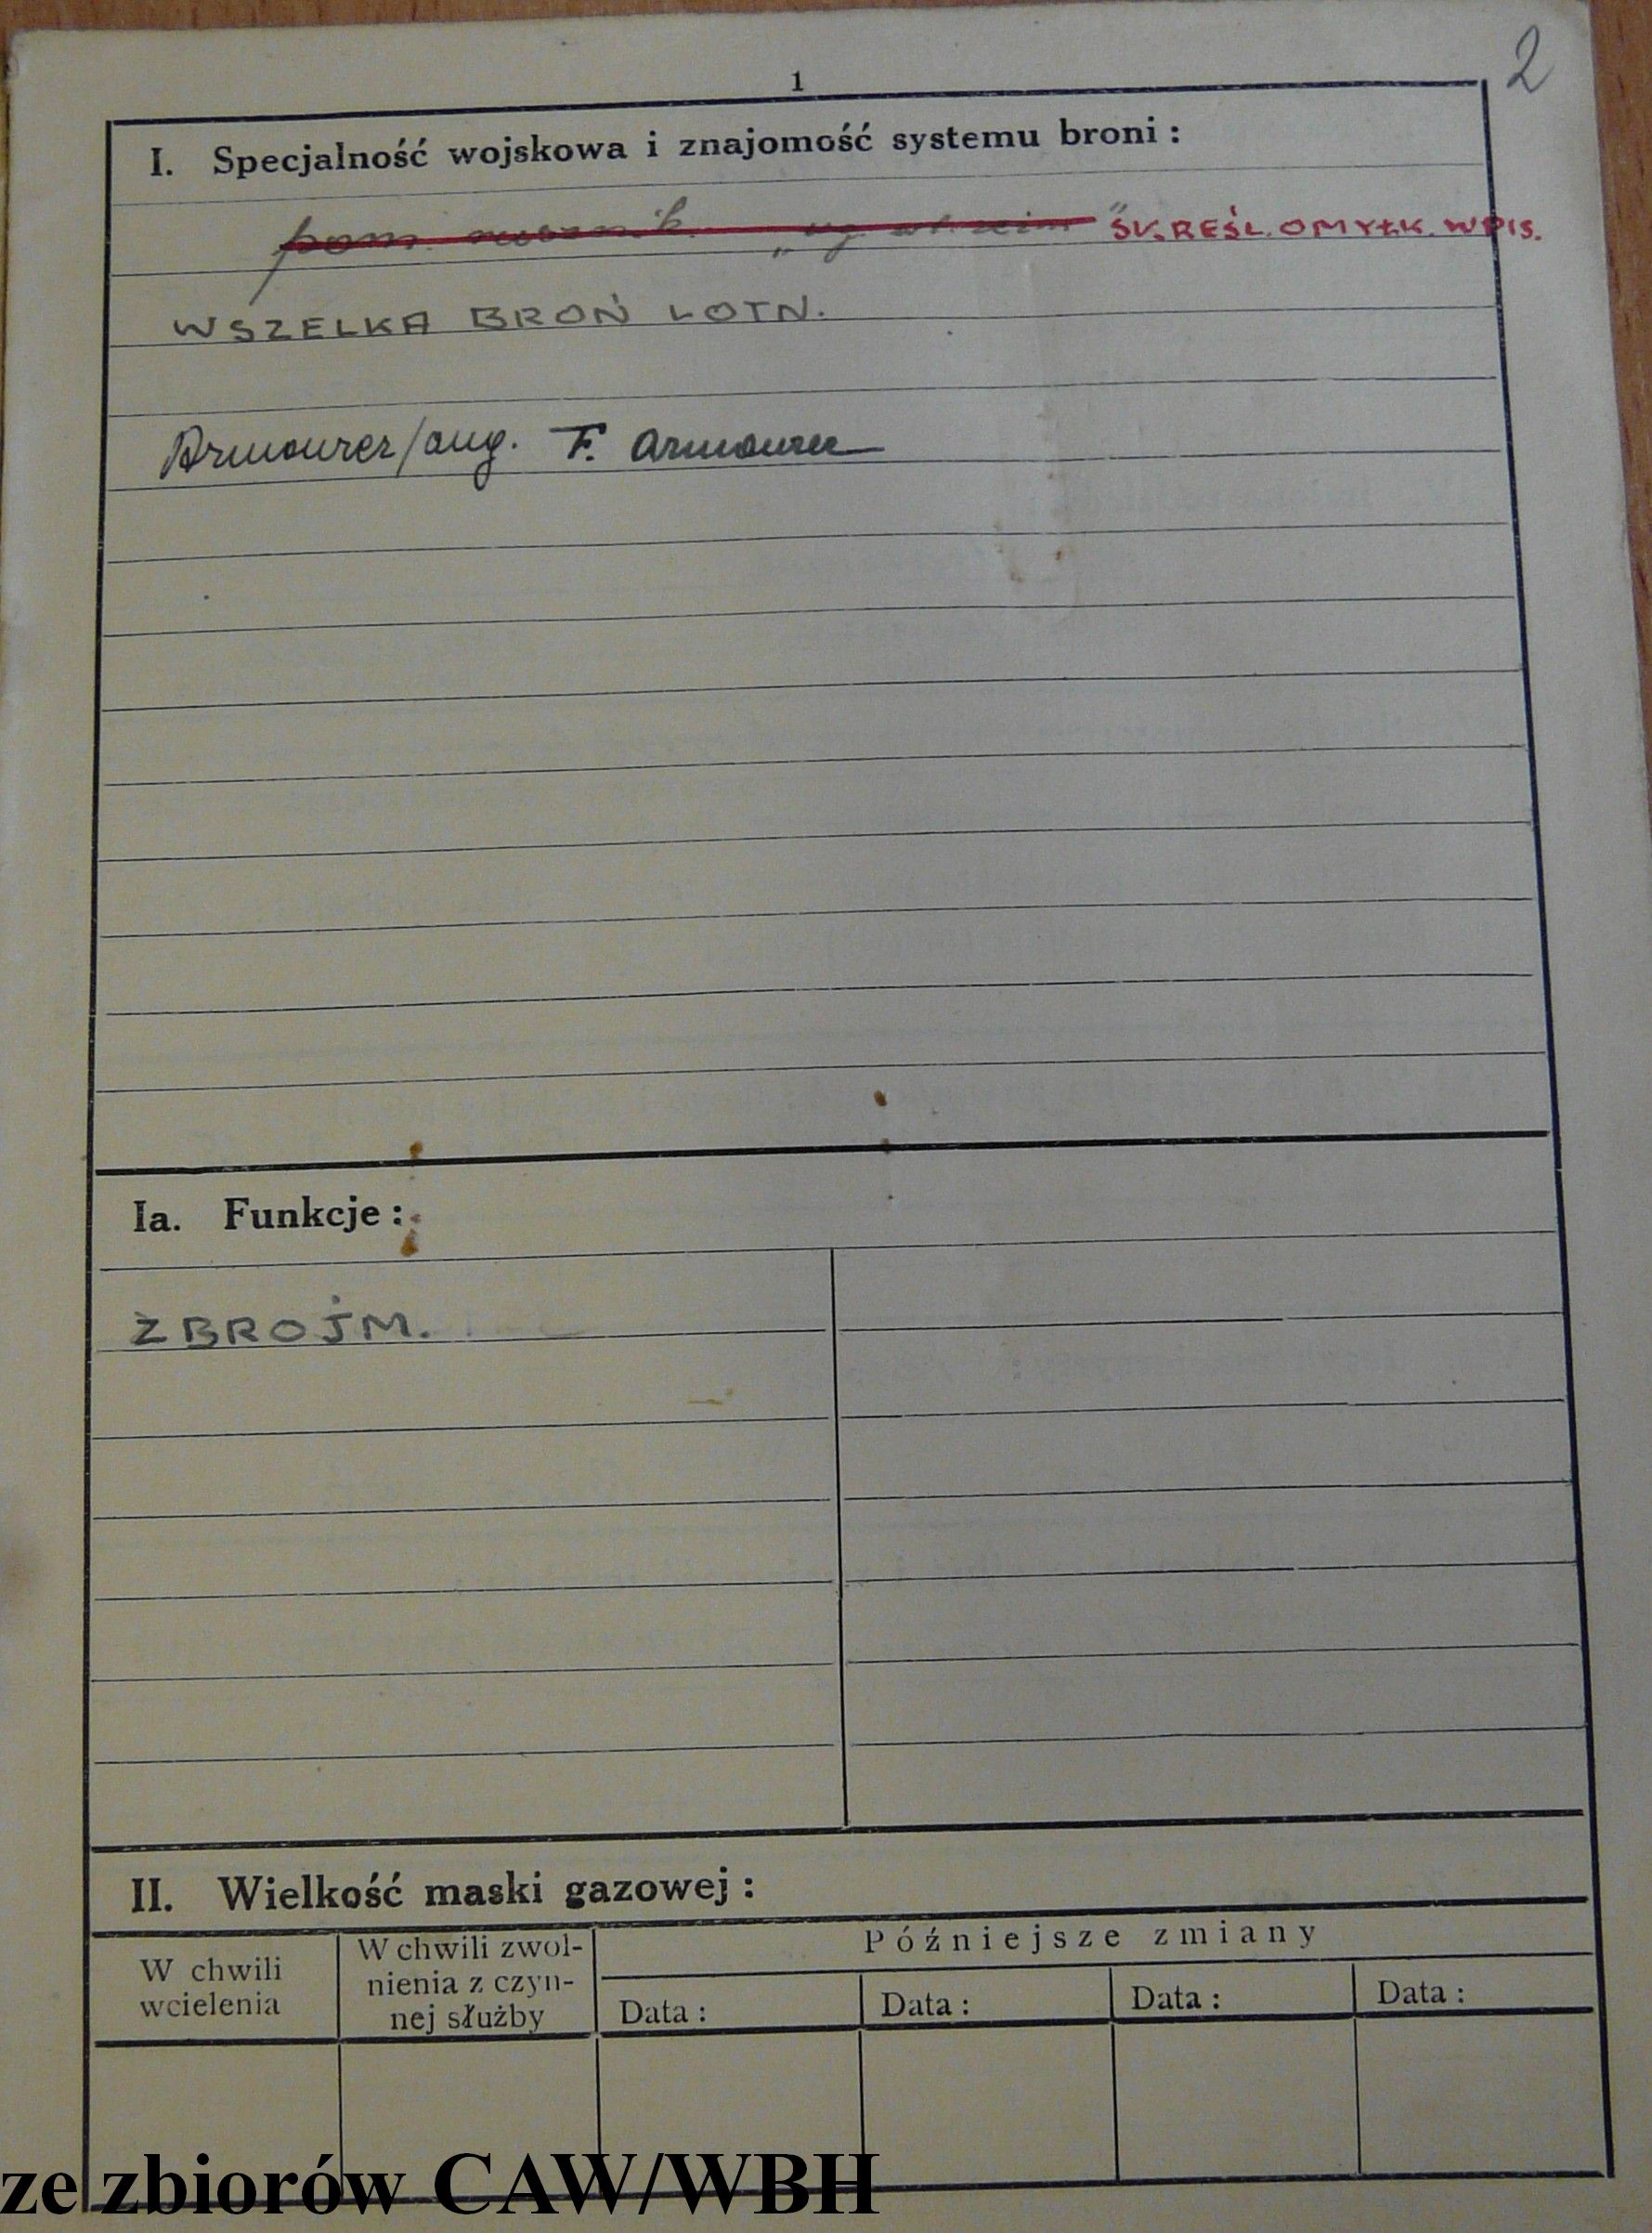 2
1
I. Specjalność wojskowa i znajomość systemu broni :
pom. " " SKREŚL. OMYŁK. WPIS.
WSZELKA BROŃ LOTN.
Armourer/ang. F. armourer
Ia. Funkcje :
ZBROJM.
II. Wielkość maski gazowej :
W chwili wcielenia
W chwili zwol-
nienia z czyn-
nej służby
Późniejsze zmiany
Data : Data : Data : Data :
ze zbiorów CAW/WBH